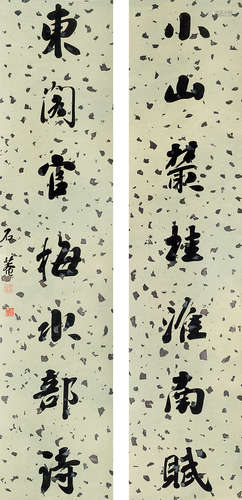 小山叢桂淮南賦
東閣官梅水部詩
石菴